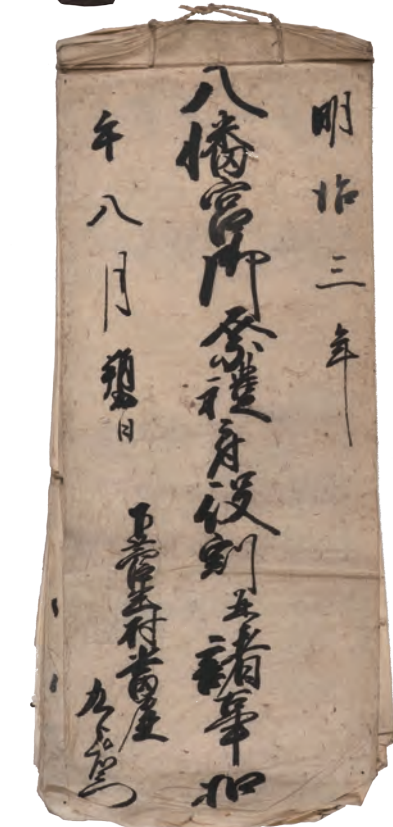 明治三年
八幡宮御祭禮ニ付役割并諸事扣
午八月 日
下菅生村当屋